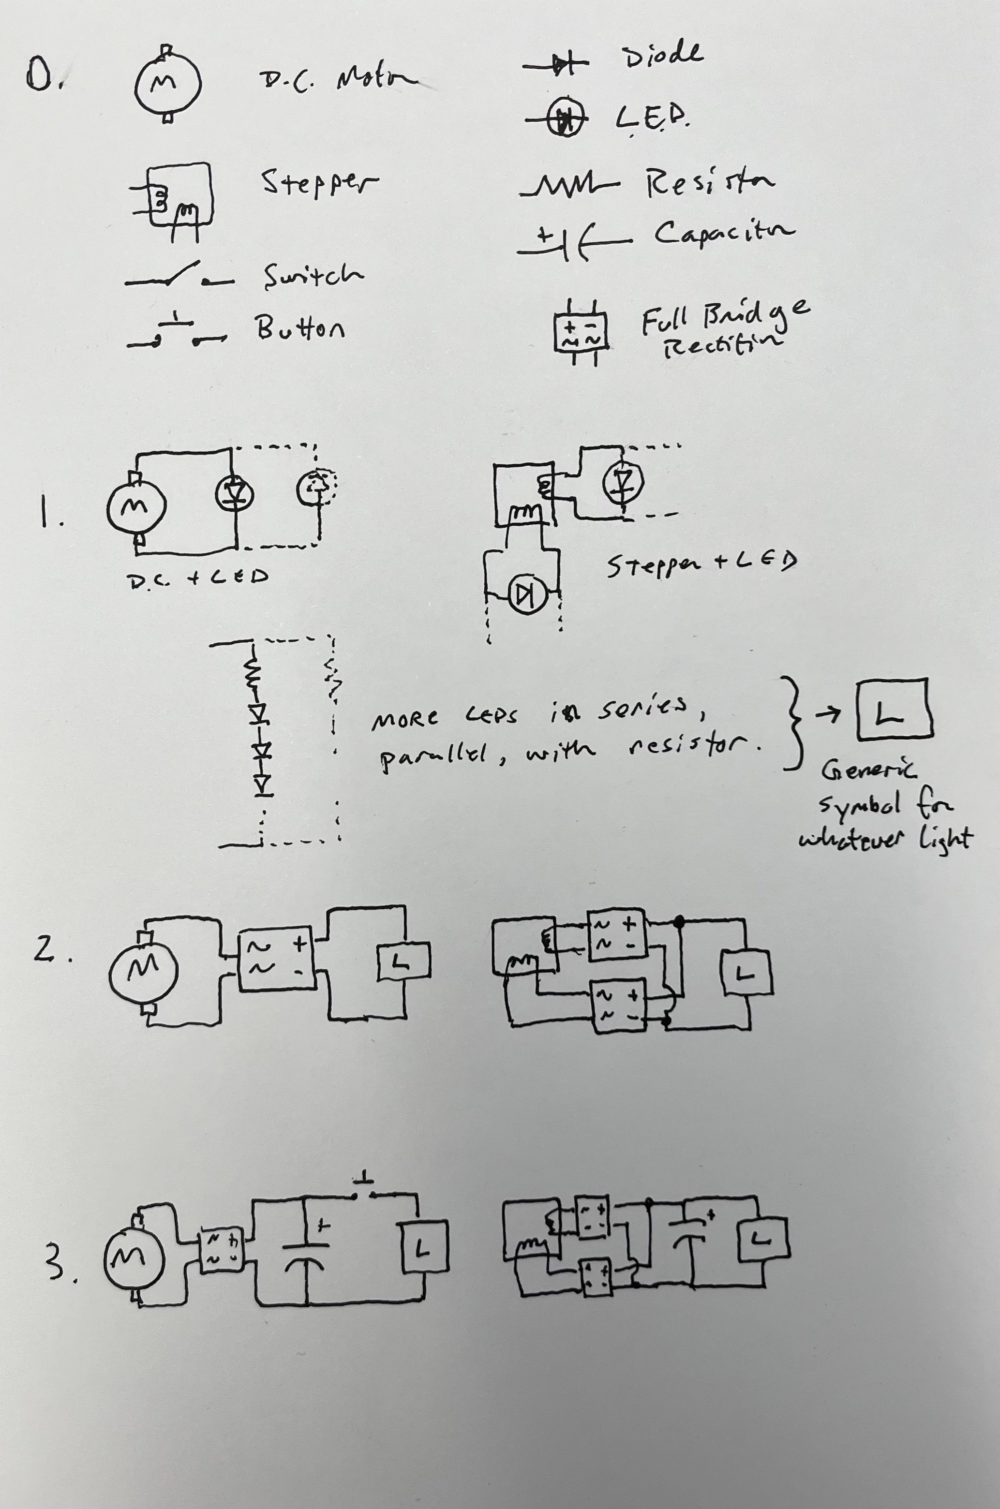 0.
M
D.C. Motor
Stepper
Switch
Button
Diode
L.E.D.
Resistor
+
Capacitor
+ -
~ ~
Full Bridge
Rectifier
1.
M
D.C. + LED
Stepper + LED
MORE LEDs in series,
parallel, with resistor.
L
Generic
symbol for
whatever light
2.
M
~ +
~ -
L
~ +
~ -
~ +
~ -
L
3.
M
~ +
~ -
+
L
~ +
~ -
+
L